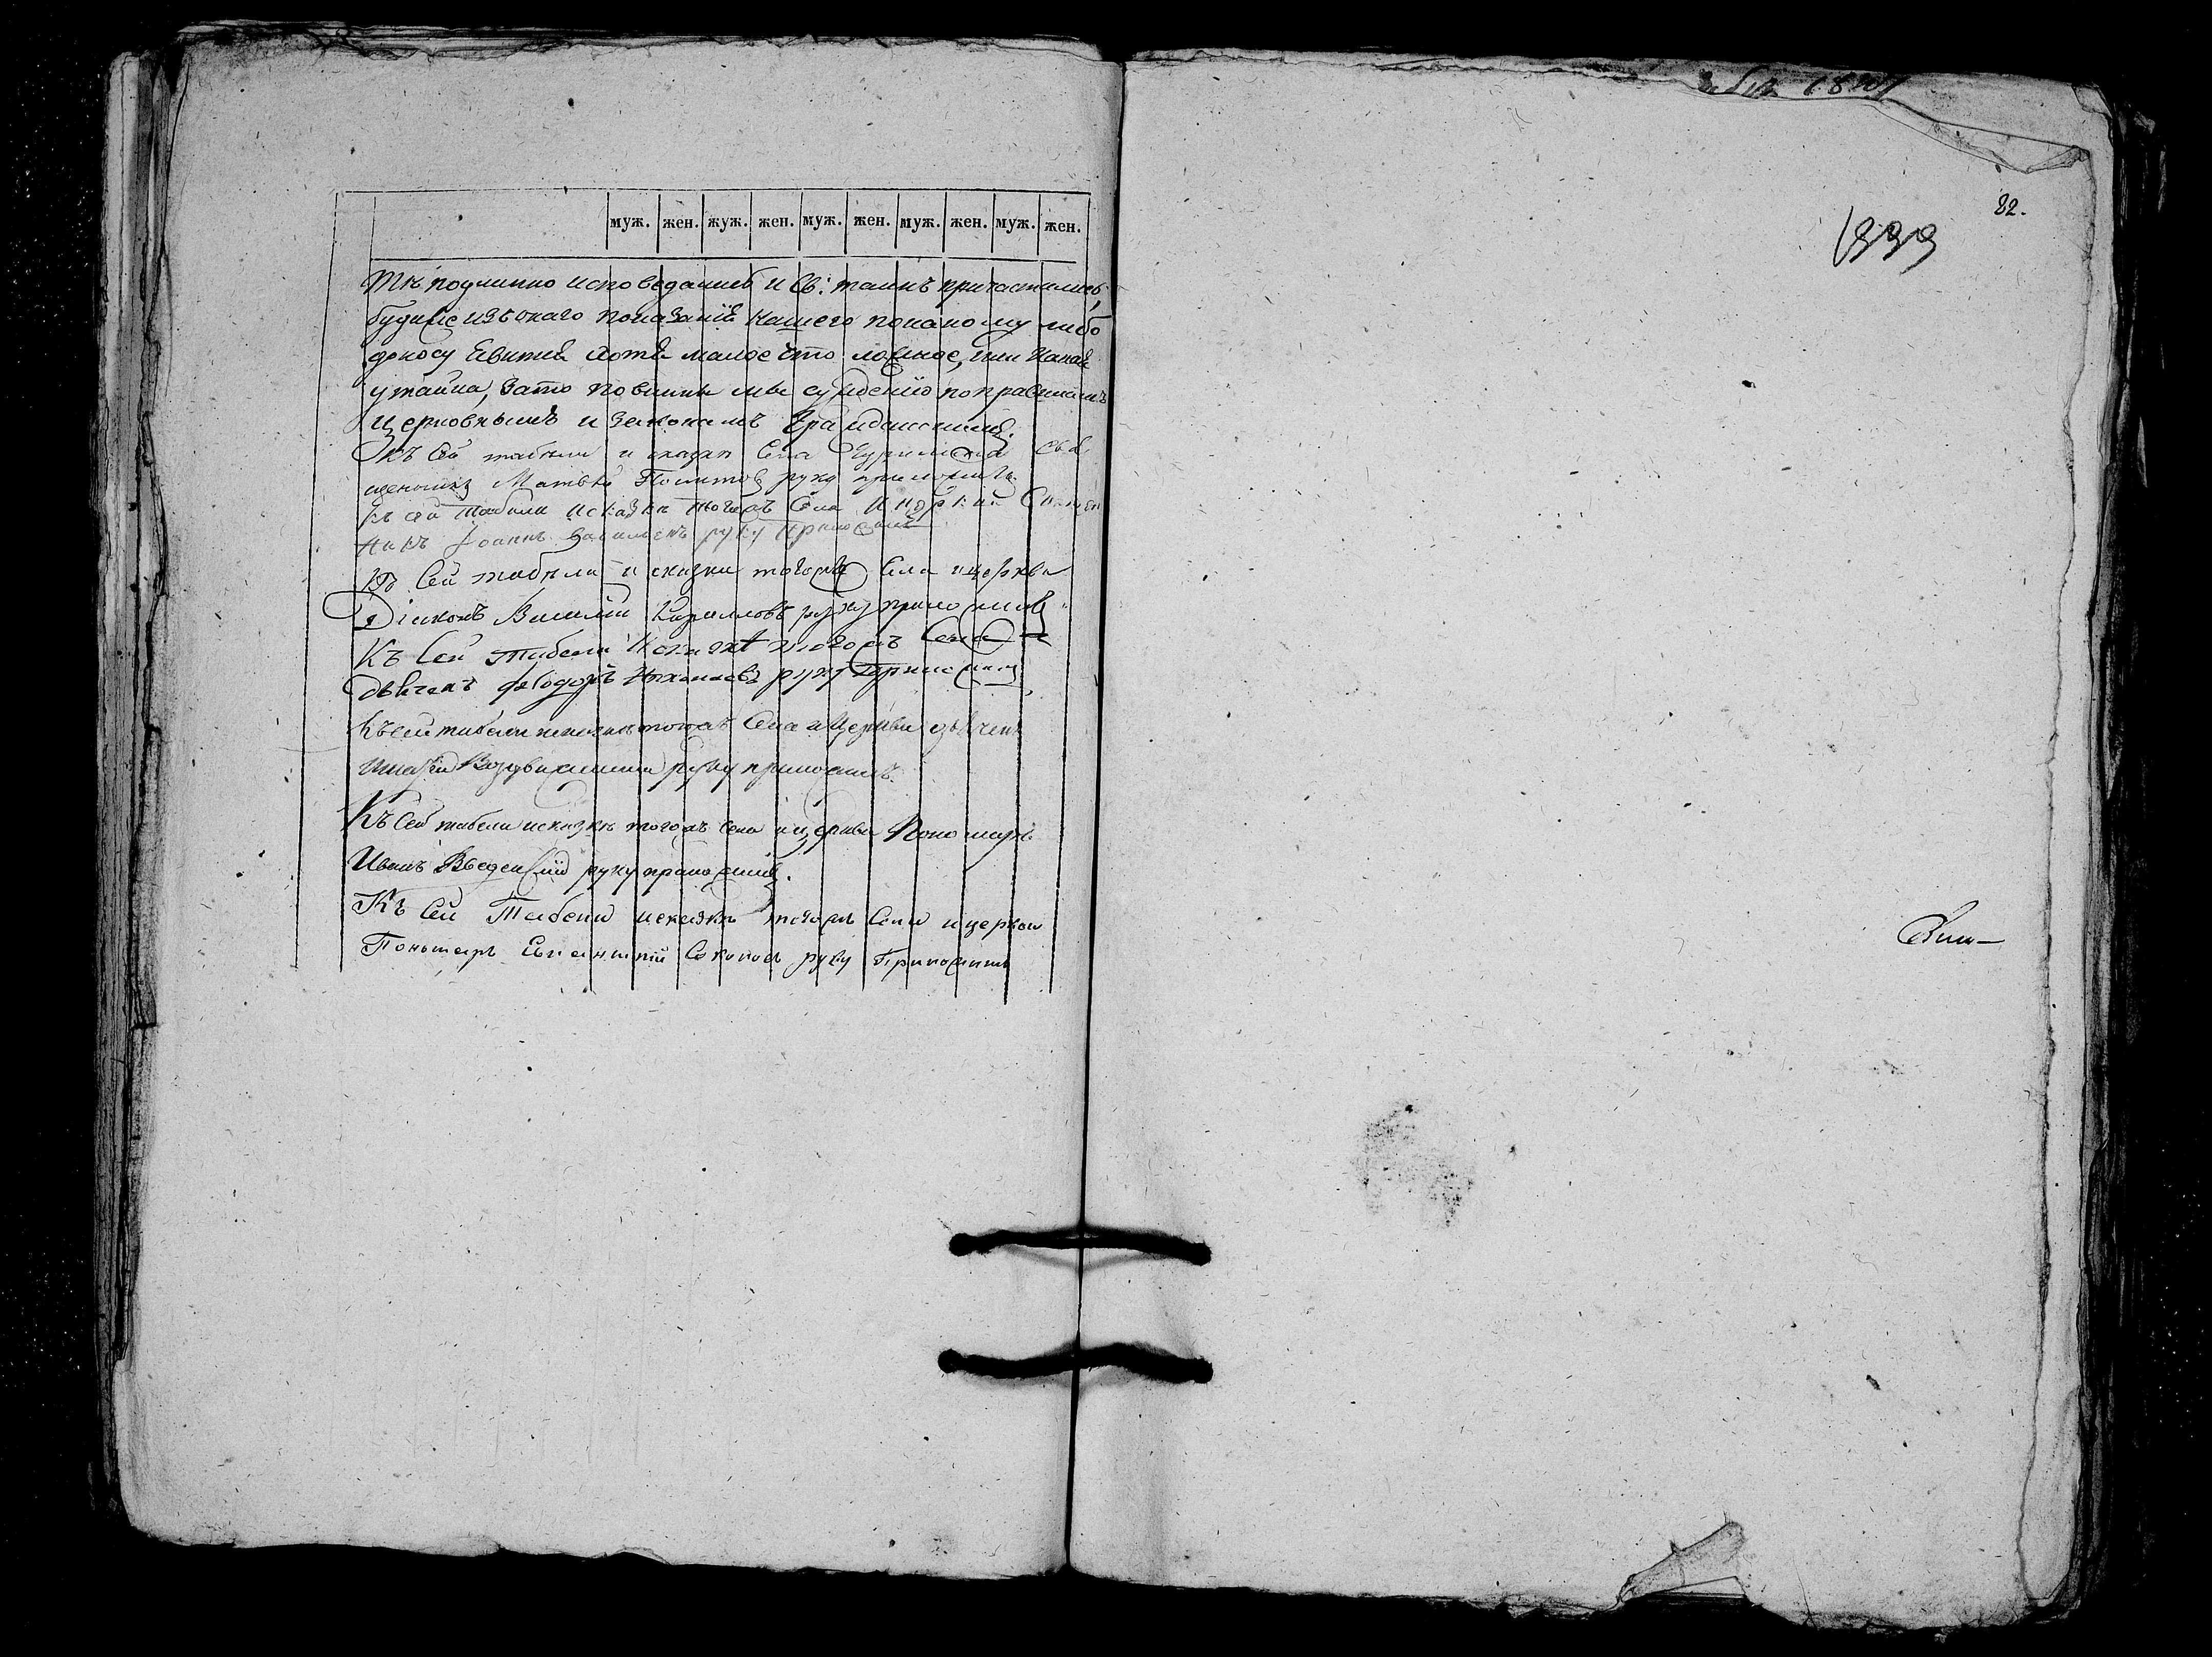 муж. жен. жуж. жен. муж. жен. муж. жен. муж. жен.
Тѣ подлинно исповедались и Св: таинъ причастились,
буде же изъ онаго показанія нашего покакому либо
доносу явится хотя малое что ложное, или какая
утайка, зато повинны мы сужденію по правиламъ
церковнымъ и законамъ Гражданскимъ.
Къ сей табели и сказки Села свя
щенникъ Матвей руку приложилъ
Къ сей табели исказки тогожъ Села и Церкви Священ
никъ Іоаннъ Васильевъ руку приложилъ
Къ Сей табели и сказки тогожъ Села и церкви
Діаконъ Василій Кирилловъ руку приложилъ
Къ Сей табели исказке тогожъ Села
дьячекъ феодоръ руку приложилъ
Къ сей табели исказкѣ тогожъ Села и Церкви дьячекъ
руку приложилъ.
Къ Сей табели исказкѣ тогожъ села и церкви Пономарь
Иванъ Введенскій руку приложилъ.
Къ Сей Табели исказкѣ тогожъ Села и церкви
Пономарь руку Приложилъ
82.
1839